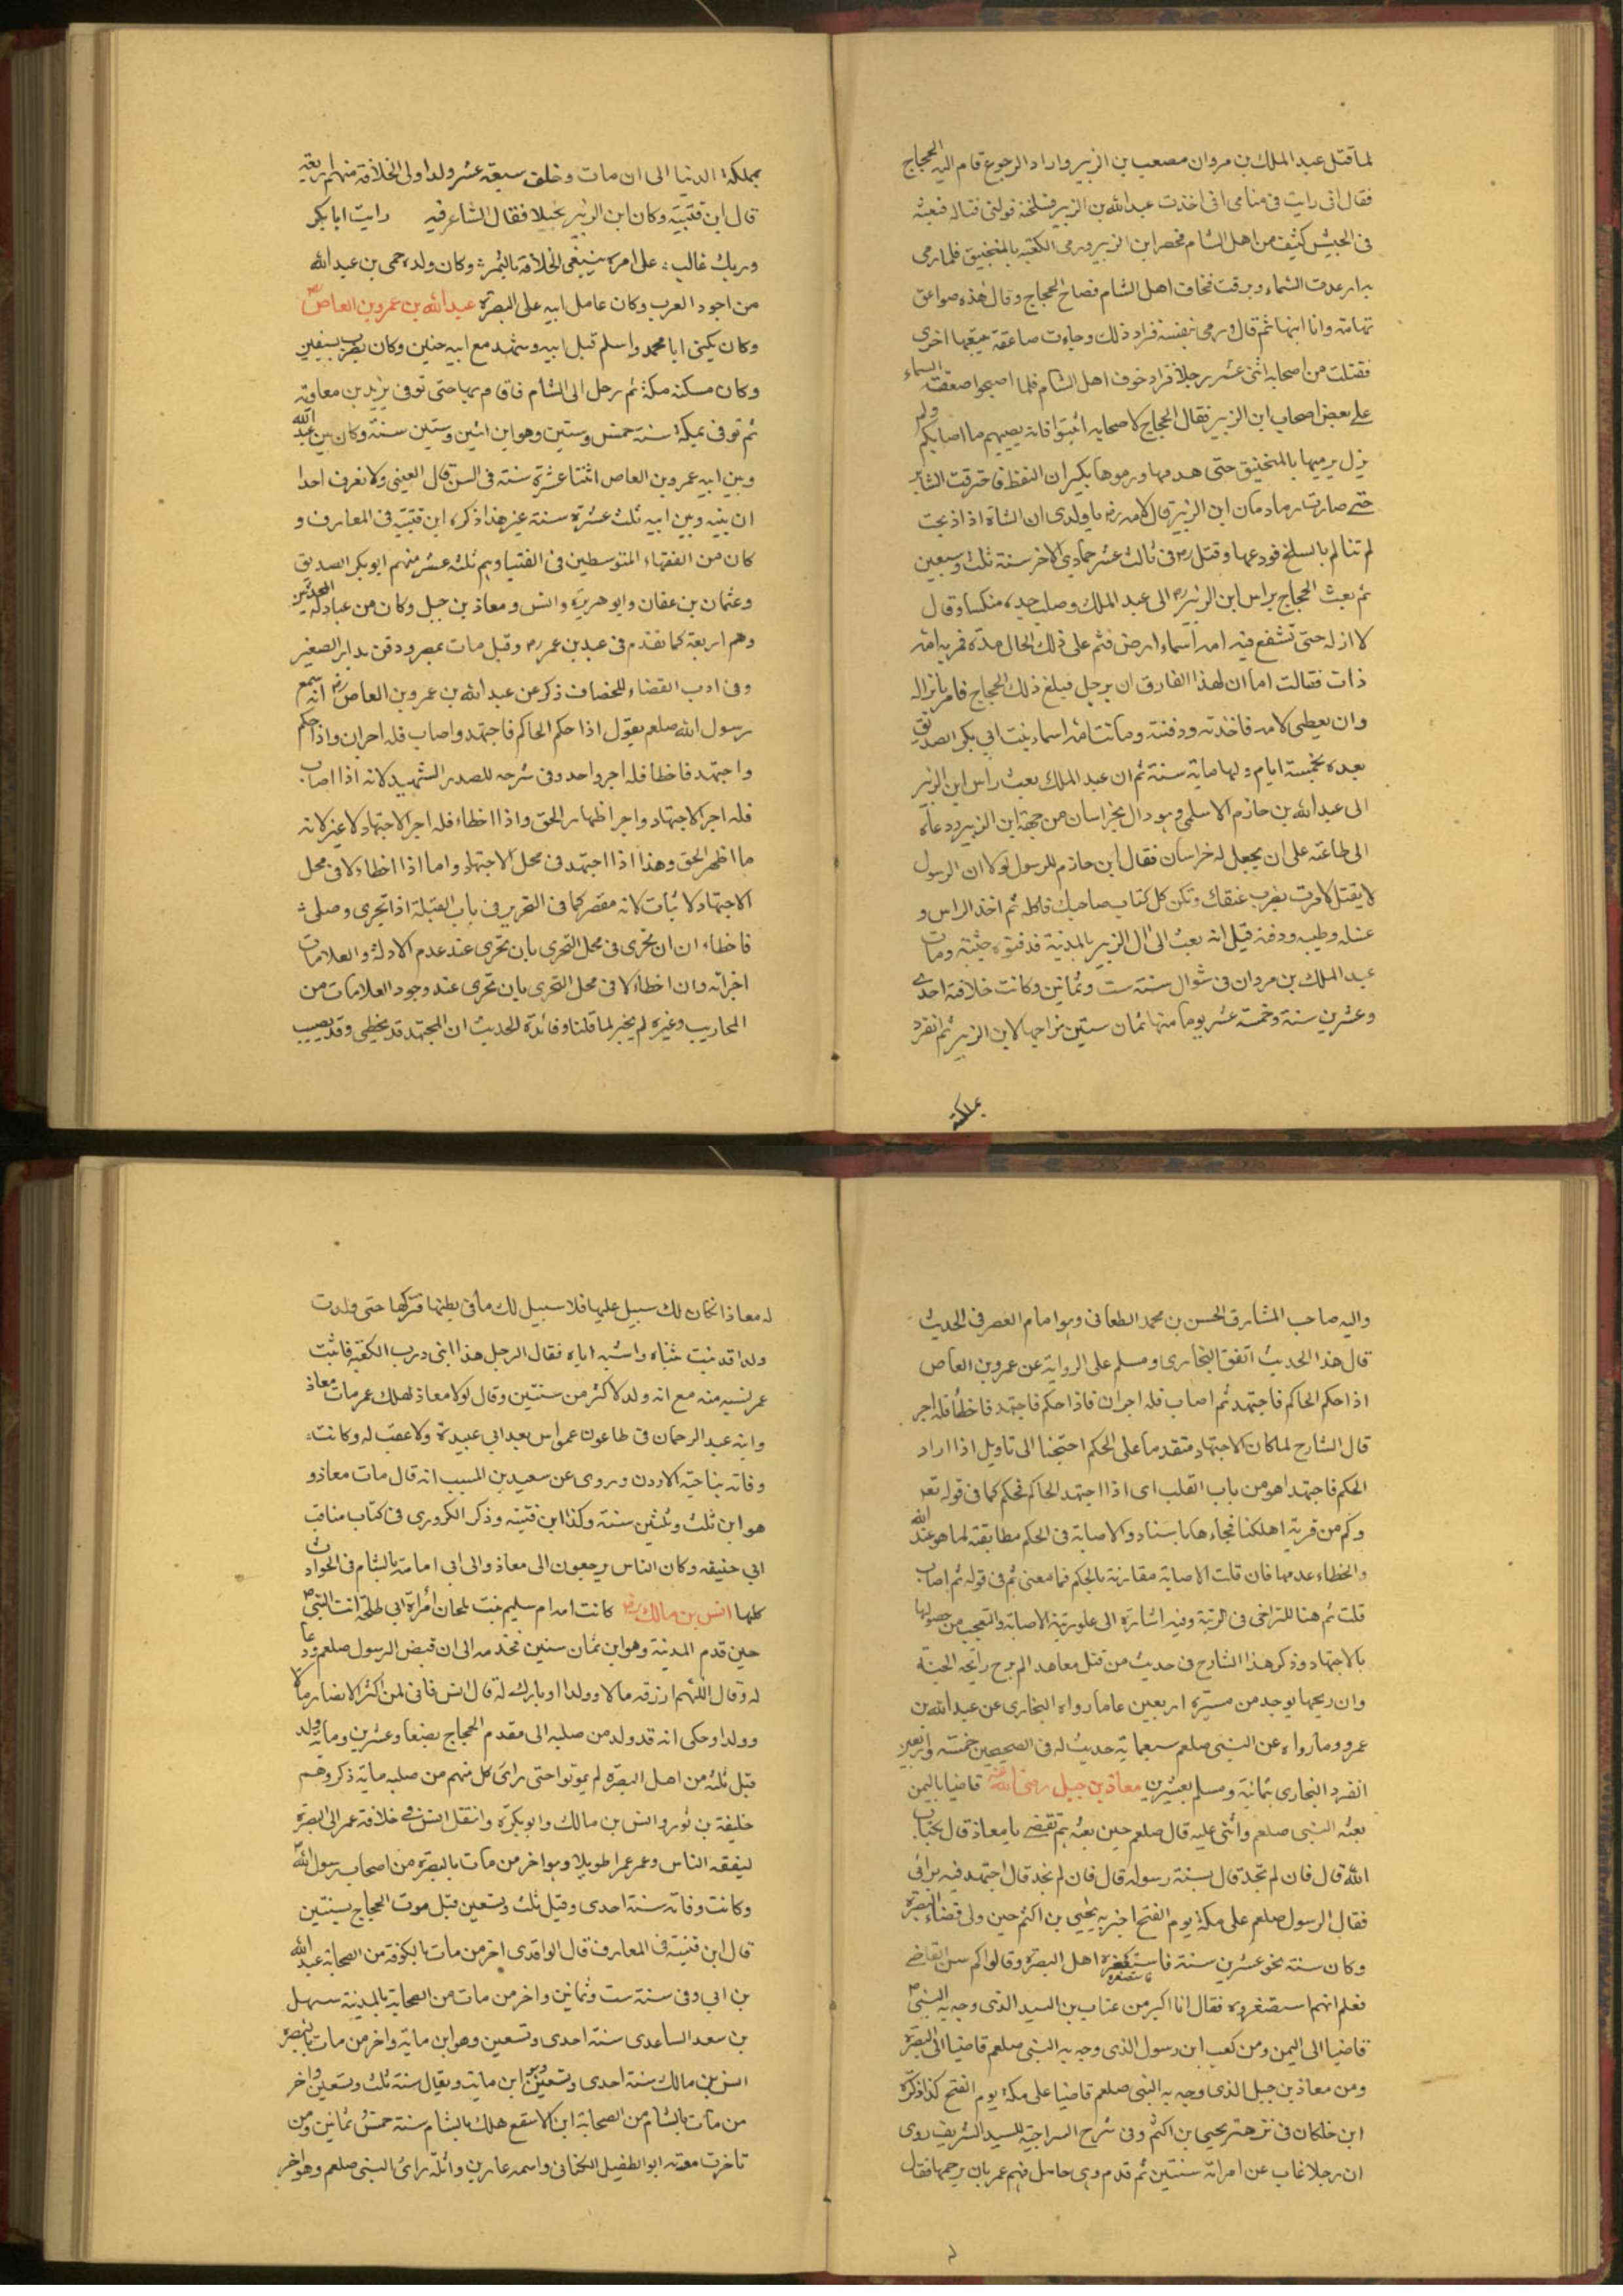 لما قتل عبد الملك بن مروان مصعب بن الزبير واراد الرجوع قام اليه الحجاج
فقال انى رايت فى منامى انى اخذت عبد الله بن الزبير فسلخته فولنى قتاله فبعثه
فى الجيش كثيف من اهل الشام فحصر ابن الزبير ورمى الكعبة بالمنجنيق فلما رمى
به ارعدت السماء وبرقت فخاف اهل الشام فصاح الحجاج وقال هذه صواعق
تهامة وانا ابنها ثم قال ورمى بنفسه فزاد ذلك وجاءت صاعقة تتبعها اخرى
فقتلت من اصحابه اثنى عشر رجلا فزاد خوف اهل الشام فلما اصبحوا صعقت السماء
على بعض اصحاب ابن الزبير فقال الحجاج لاصحابه اثبتوا فانه يصيبهم ما اصابكم ولم
يزل يرميها بالمنجنيق حتى هدمها ورموها بكيزان النفط فاحترقت الستاير
حتى صارت رمادا ابن الزبير قال لامه يا ولدى ان الشاة اذا ذبحت
لم تتالم بالسلخ فودعها وقتل رض فى ثالث عشر جمادى الاخر سنة ثلث وسبعين
ثم بعث الحجاج براس ابن الزبير الى عبد الملك وصلب جسده منكسا وقال
لا انزله حتى تشفع فيه امه اسماء رض فتم على ذلك الحال مدة فمر به امه
ذات فقالت اما ان لهذا الفارق ان يرجل فبلغ ذلك الحجاج فامر بانزاله
وان يعطى لامه فاخذته ودفنته وماتت امه اسماء بنت ابي بكر الصديق
بعده بخمسة ايام ولها ماية سنة ثم ان عبد الملك بعث راس ابن الزبير
الى عبد الله بن حازم الاسلمى وهو وال بخراسان من جهة ابن الزبير ودعاه
الى طاعته على ان يجعل له خراسان فقال ابن حازم للرسول لولا ان الرسول
لا يقتل لامرت بضرب عنقك ولكن كل كتاب صاحبك فاكله ثم اخذ الراس و
غسله وطيبه ودفنه قيل انه بعث الى آل الزبير بالمدينة فدفنوه جثته ومات
عبد الملك بن مروان فى شوال سنة ست وثمانين وكانت خلافته احدى
وعشرين سنة وخمسة عشر يوما منها ثمان سنين مزاحما لابن الزبير ثم انفرد
بمملكة
بمملكة الدنيا الى ان مات وخلف سبعة عشر ولدا ولى الخلافة منهم اربعة
قال ابن قتيبة وكان ابن الزبير بخيلا فقال الشاعر فيه رايت ابا بكر
وربك غالب على امره يبتغى الخلافة بالتمر وكان ولده حمى بن عبد الله
من اجود العرب وكان عامل ابيه على البصرة عبد الله بن عمرو بن العاص
وكان يكنى ابا محمد واسلم قبل ابيه وشهد مع ابيه حنين وكان يضرب بسيفين
وكان مسكنه مكة ثم رحل الى الشام فاقام بها حتى توفى يزيد بن معاوية
ثم توفى بمكة سنة خمس وستين وهو ابن اثنين وستين سنة وكان بين عبد الله
وبين ابيه عمرو بن العاص اثنتا عشرة سنة فى السن قال العينى ولا نعرف احدا
ان بينه وبين ابيه ثلث عشرة سنة غير هذا ذكره ابن قتيبة فى المعارف و
كان من الفقهاء المتوسطين فى الفتيا وهم ثلثه عشر منهم ابو بكر الصديق
وعثمان بن عفان وابو هريرة وانس ومعاذ بن جبل وكان من عبادله المحدثين
وهم اربعة كما تقدم فى عبد بن عمر رض وقيل مات بمصر ودفن بداره الصغير
وفى ادب القضاء للخصاف ذكر عن عبد الله بن عمرو بن العاص رض انه سمع
رسول الله صلعم يقول اذا حكم الحاكم فاجتهد واصاب فله اجران واذا حكم
واجتهد فاخطا فله اجر واحد وفى شرحه للصدر الشهيد لانه اذا اصاب
فله اجر الاجتهاد واجر اظهار الحق واذا اخطاء فله اجر الاجتهاد لا غير لانه
ما اظهر الحق وهذا اذا اجتهد فى محل الاجتهاد واما اذا اخطاء لا فى محل
الاجتهاد لا يثاب لانه مقصر كما فى التحرير فى باب القبلة اذا تحرى وصلى
فاخطاء ان ان تحرى فى محل التحرى بان تحرى عند عدم الادلة والعلامات
اجزاته وان اخطاء لا فى محل التحرى بان تحرى عند وجود العلامات من
المحاريب وغيره لم يجز لما قلنا وفائدة الحديث ان المجتهد قد يخطى وقد يصيب
واليه صاحب المشارق الحسن بن محمد الصغانى وهو امام العصر فى الحديث
قال هذا الحديث اتفق البخارى ومسلم على الرواية عن عمرو بن العاص
اذا حكم الحاكم فاجتهد ثم اصاب فله اجران فاذا حكم فاجتهد فاخطأ فله اجر
قال الشارح لما كان الاجتهاد متقدما على الحكم احتجنا الى تاويل اذا اراد
الحكم فاجتهد اهو من باب القلب اى اذا اجتهد الحاكم فحكم كما فى قوله تعر
وكم من قرية اهلكنا فجاءها باسنا والاصابة فى الحكم مطابقته لما هو عند الله
والخطاء عدمها فان قلت الاصابة مقارنة بالحكم فما معنى ثم فى قوله ثم اصاب
قلت ثم هنا للتراخى فى الرتبة وفيه اشارة الى علو رتبة الاصابة والتعجب من حصولها
بالاجتهاد وذكر هذا الشارح فى حديث من قتل معاهدا لم يرح رائحة الجنة
وان ريحها يوجد من مسيرة اربعين عاما رواه البخارى عن عبد الله بن
عمرو وما رواه عن النبى صلعم سبعماية حديث له فى الصحيحين خمسة واربعين
انفرد البخارى بثمانية ومسلم بعشرين معاذ بن جبل رضى الله عنه قاضيا باليمن
بعثه النبى صلعم واثنى عليه قال صلعم حين بعثه بم تقضى يا معاذ قال بكتاب
الله قال فان لم تجد قال بسنة رسوله قال فان لم تجد قال اجتهد فيه برائى
فقال الرسول صلعم على مكة يوم الفتح اخبر به يحيى بن اكثم حين ولى قضاء البصرة
وكان سنه نحو عشرين سنة فاستصغره اهل البصرة وقالوا كم سن القاضى
فعلم انهم استصغروه فقال انا اكبر من عتاب بن اسيد الذى وجه به النبى
قاضيا الى اليمن ومن كعب ابن رسول الذى وجه به النبى صلعم قاضيا الى البصرة
ومن معاذ بن جبل الذى وجه به النبى صلعم قاضيا على مكة يوم الفتح كذا ذكره
ابن خلكان فى ترجمة يحيى بن اكثم وفى شرح السراجية للسيد الشريف روى
ان رجلا غاب عن امراته سنتين ثم قدم وهى حامل فهم عمر بان يرجمها فقال
له معاذ ان كان لك سبيل عليها فلا سبيل لك ما فى بطنها فتركها حتى ولدت
ولدا قد نبت ثناياه واشبه اباه فقال الرجل هذا ابنى ورب الكعبة فاثبت
عمر نسبه منه مع انه ولد لاكثر من سنتين وقال لولا معاذ لهلك عمر مات معاذ
وابنه عبد الرحمان فى طاعون عمواس بعد ابى عبيدة ولا عقب له وكانت
وفاته بناحية الاردن وروى عن سعيد بن المسيب انه قال مات معاذ و
هو ابن ثلث وثلثين سنة وكذا ابن قتيبة وذكر الكرورى فى كتاب مناقب
ابى حنيفه وكان الناس يرجعون الى معاذ والى ابى امامة بالشام فى الحوادث
كلها انس بن مالك رض كانت امه ام سليم بنت ملحان امرأة ابى طلحة اتت النبى
حين قدم المدينة وهو ابن ثمان سنين فخدمه الى ان قبض الرسول صلعم ودعا
له وقال اللهم ارزقه مالا وولدا وبارك له قال انس فانى لمن اكثر الانصار مالا
وولدا وحكى انه قد ولد من صلبه الى مقدم الحجاج بضعا وعشرين وماية ولد
قيل ثلثه من اهل البصرة لم يموتوا حتى راى كل منهم من صلبه ماية ذكر وهم
خليفة بن نور وانس بن مالك وابو بكرة وانتقل انس فى خلافة عمر الى البصرة
ليفقه الناس وعمر عمرا طويلا وهو اخر من مات بالبصرة من اصحاب رسول الله
وكانت وفاته سنة احدى وقيل ثلث وتسعين قبل موت الحجاج بسنتين
قال ابن قتيبة فى المعارف قال الواقدى اخر من مات بالكوفة من الصحابة عبد الله
بن ابى اوفى سنة ست وثمانين واخر من مات من الصحابة بالمدينة سهل
بن سعد الساعدى سنة احدى وتسعين وهو ابن ماية واخر من مات بالبصرة
انس بن مالك سنة احدى وتسعين وهو ابن ماية ويقال سنة ثلث وتسعين واخر
من مات بالشام من الصحابة ابن الاسقع هلك بالشام سنة خمس ثمانين ومن
تاخرت موته ابو الطفيل الكنانى واسمه عامر بن واثلة راى النبى صلعم وهو اخر